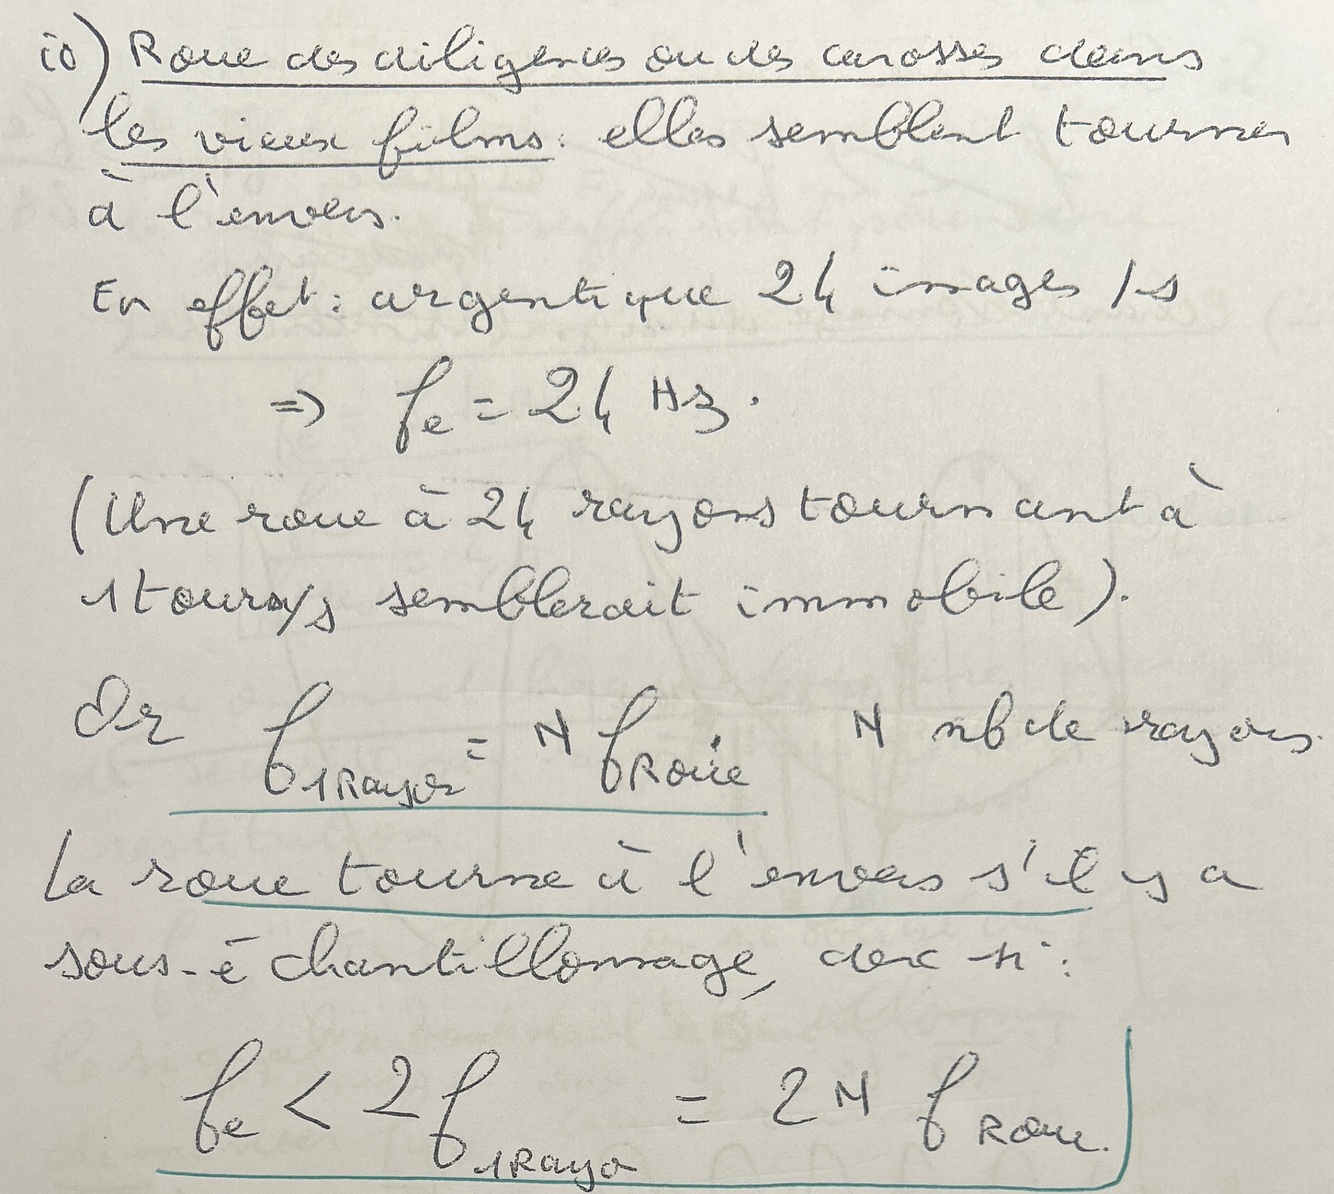 io) Roue des diligences ou des carosses dans
les vieux films : elles semblent tourner
à l'envers.
En effet : argentique 24 images /s
=> fe = 24 Hz.
(Une roue à 24 rayons tournant à
1 tours/s semblerait immobile).
Or f1Rayon = N fRoue N nb de rayons.
La roue tourne à l'envers s'il y a
sous-échantillonnage, donc si :
fe < 2 f1Rayon = 2N fRoue.